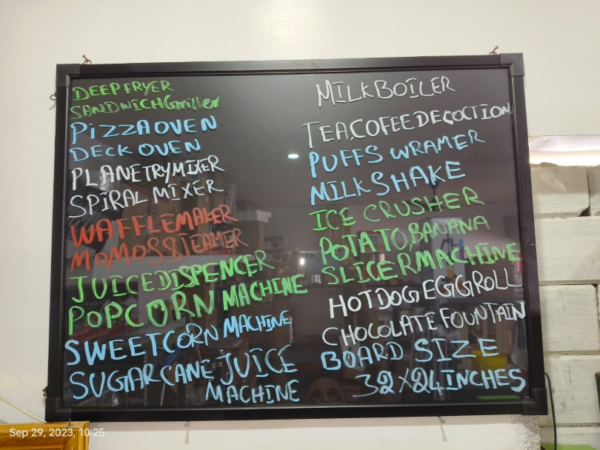 DEEPFRYER
SANDWICHGriller
PIZZAOVEN
DECKOVEN
PLANETRYMIXER
SPIRAL MIXER
WAFFLEMAKER
MOMOSSTEAMER
JUICEDISPENCER
POPCORN MACHINE
SWEETCORN MACHINE
SUGARCANE JUICE
MACHINE
MILKBOILER
TEA,COFEEDECOCTION
PUFFS WRAMER
MILKSHAKE
ICE CRUSHER
POTATO,BANANA
SLICERMACHINE
HOTDOGEGGROLL
CHOCOLATEFOUNTAIN
BOARD SIZE
32X24INCHES
Sep 29, 2023, 10:25